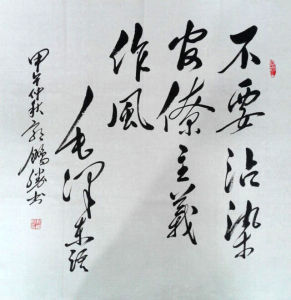 不要沾染
官僚主義
作風
毛澤東語
甲午仲秋 鵬勝书